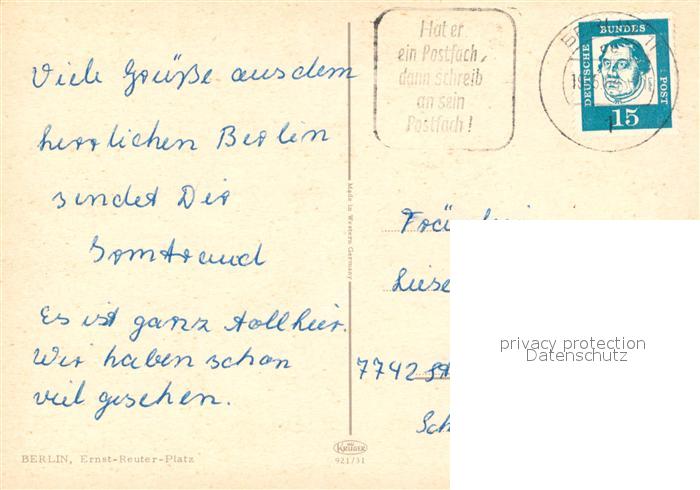 Viele Grüße aus dem
herrlichen Berlin
sendet Dir
Irmtraud
Es ist ganz toll hier.
Wir haben schon
viel gesehen.
BERLIN, Ernst-Reuter-Platz
Made in Western Germany
KRÜGER
921/31
Hat er
ein Postfach,
dann schreib
an sein
Postfach!
DEUTSCHE
BUNDES
POST
15
Liese
7742 St
Sch
privacy protection
Datenschutz